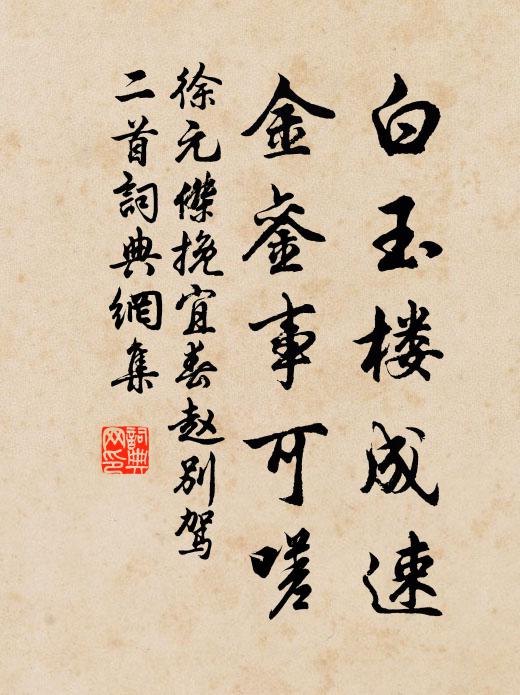 白玉楼成速
金銮事可嗟
徐元傑挽宜春赵别驾
二首詞典網集
詞典网印